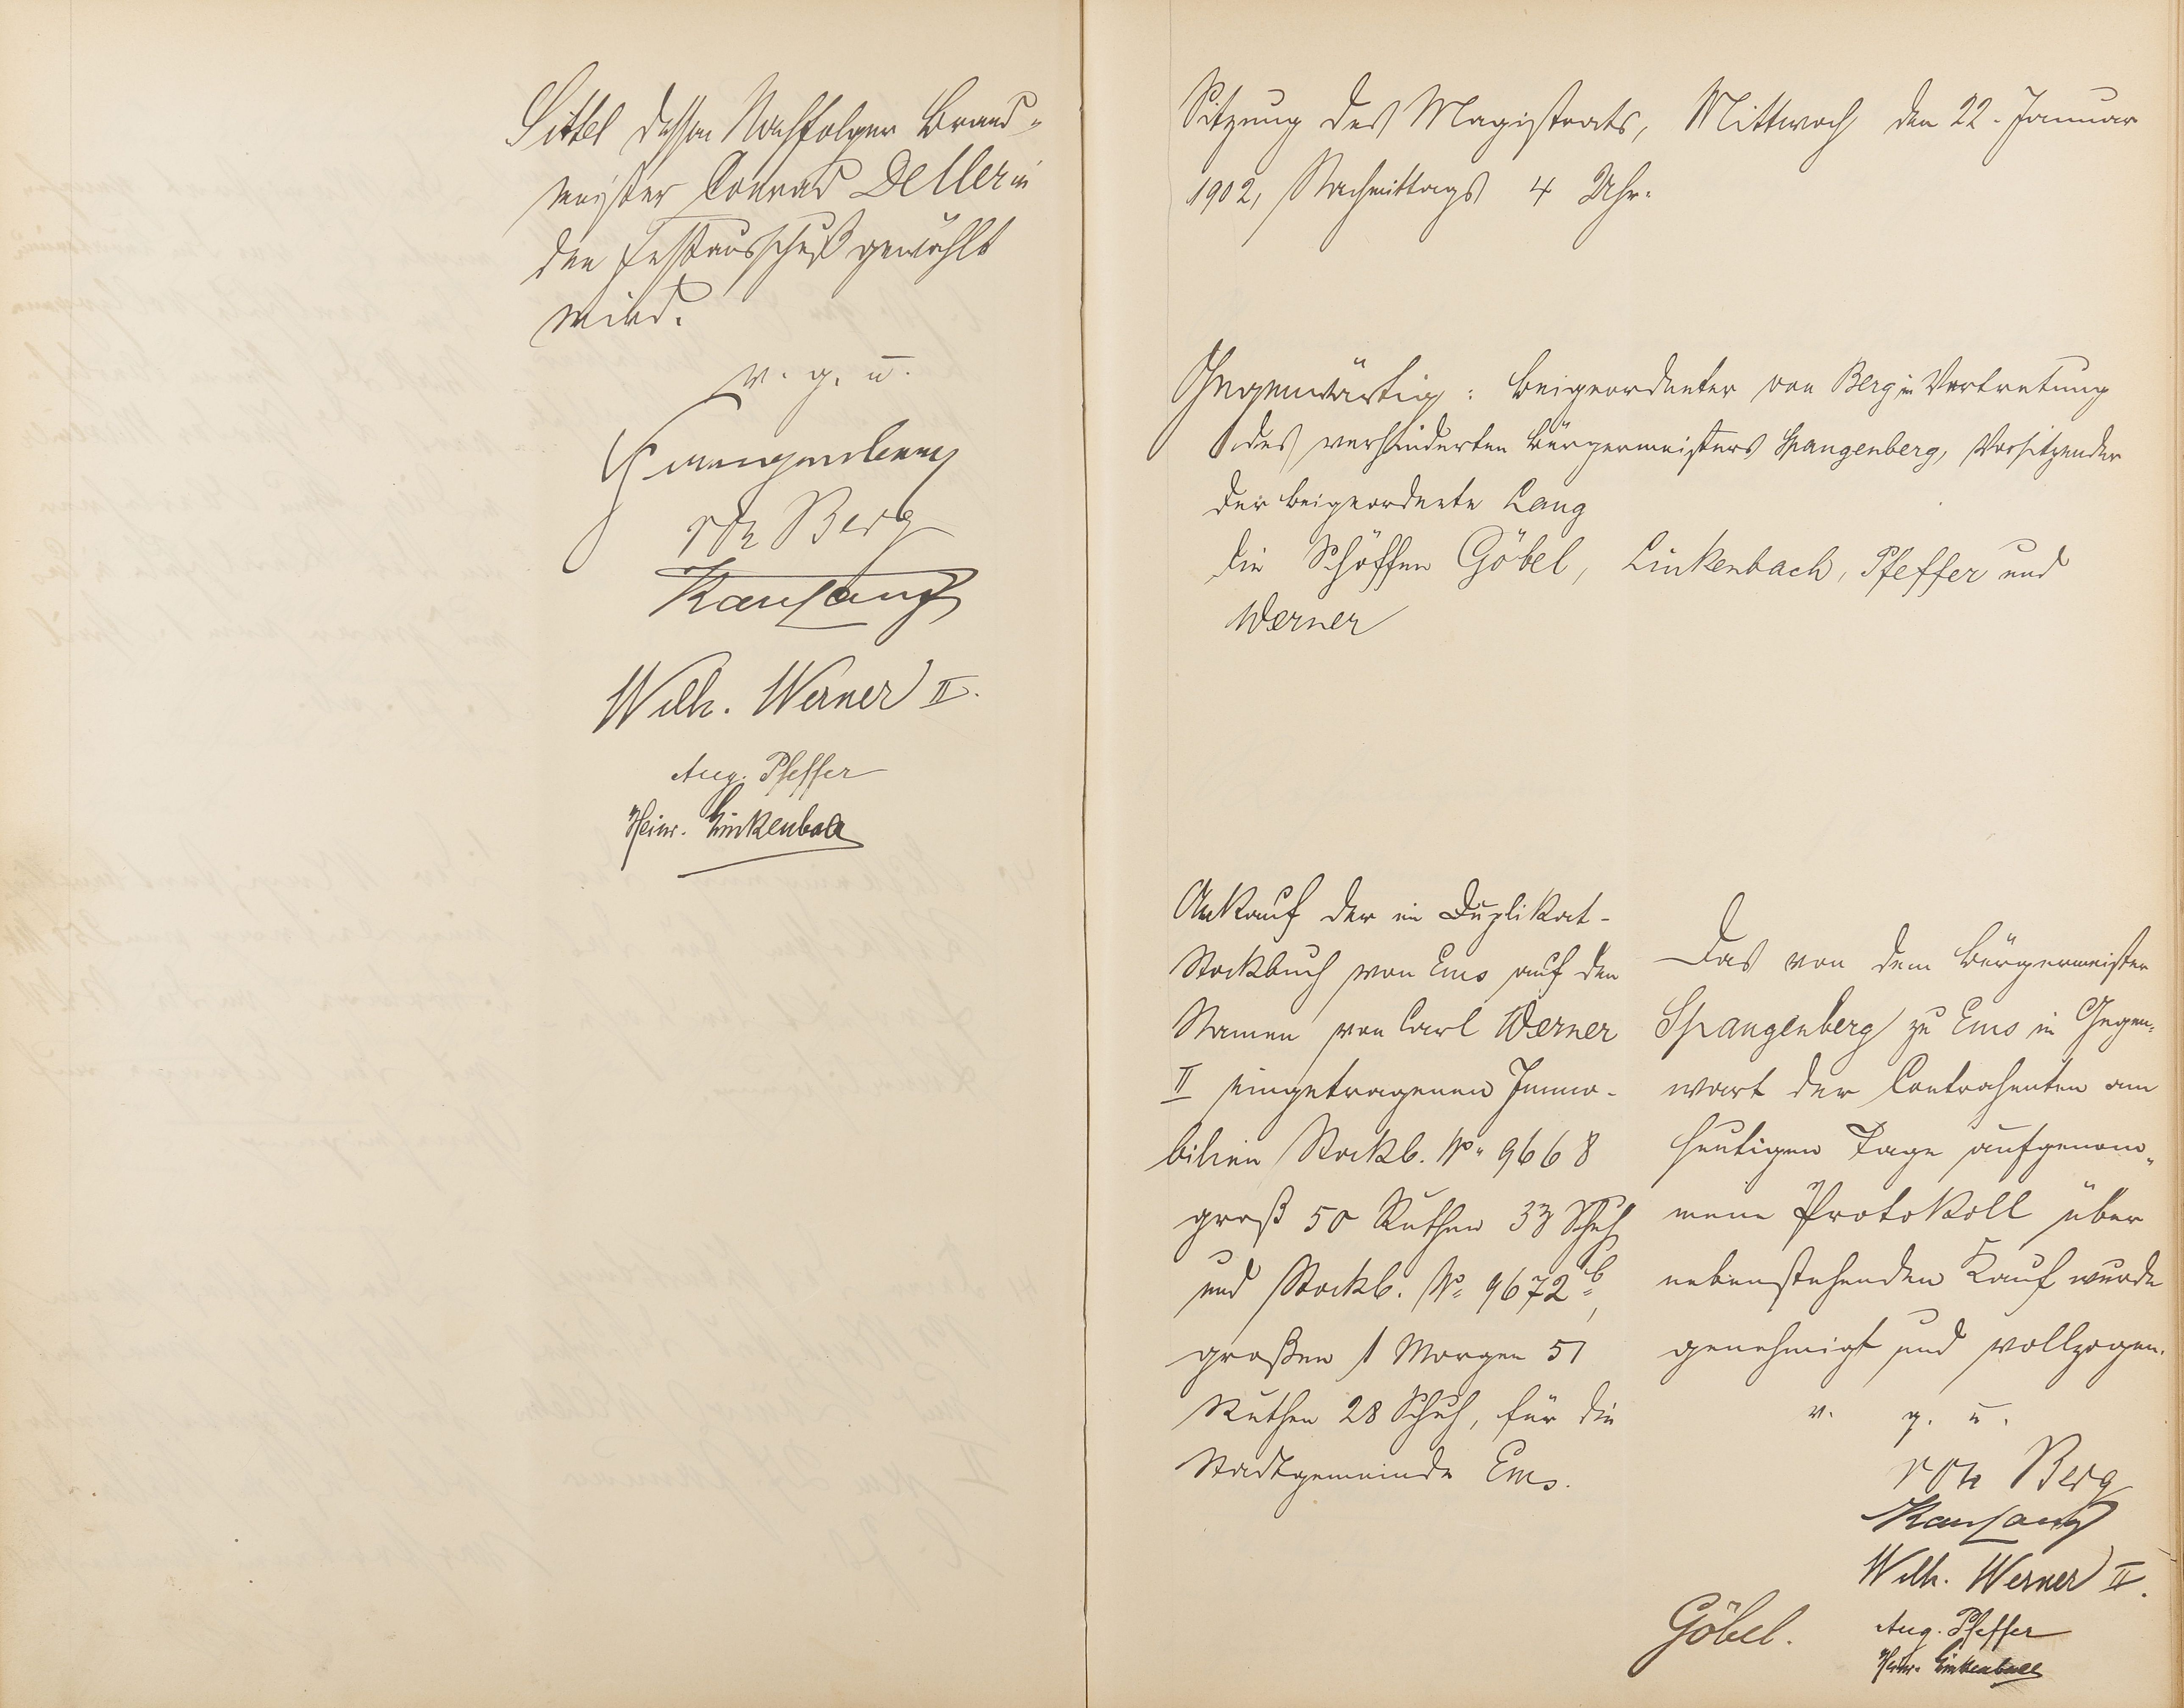 Sittel dessen Nachfolger Brand-
meister Conrad Deller in
den Festausschuß gewählt
wird.
v. g. u.
Spangenberg
von Berg
Karl Lang
Wilh. Werner II.
Aug. Pfeffer
Heinr. Linkenbach
Sitzung des Magistrats, Mittwoch den 22. Januar
1902, Nachmittags 4 Uhr.
Gegenwärtig: Beigeordneter von Berg in Vertretung
des verhinderten Bürgermeisters Spangenberg, Vorsitzender
der Beigeordnete Lang
die Schöffen Göbel, Linkenbach, Pfeffer und
Werner
Ankauf der im Duplikat-
Stockbuch von Ems auf den
Namen von Carl Werner
II eingetragenen Immo-
bilien Stockb. No. 9668
groß 50 Ruthen 33 Schuh
und Stockb. No. 9672 b,
großen 1 Morgen 51
Ruthen 28 Schuh, für die
Stadtgemeinde Ems.
Das von dem Bürgermeister
Spangenberg zu Ems in Gegen-
wart der Contrahenten am
heutigen Tage aufgenom-
mene Protokoll über
nebenstehenden Kauf wurde
genehmigt und vollzogen.
v. g. u.
von Berg
Karl Lang
Wilh. Werner II.
Göbel.
Aug. Pfeffer
Heinr. Linkenbach